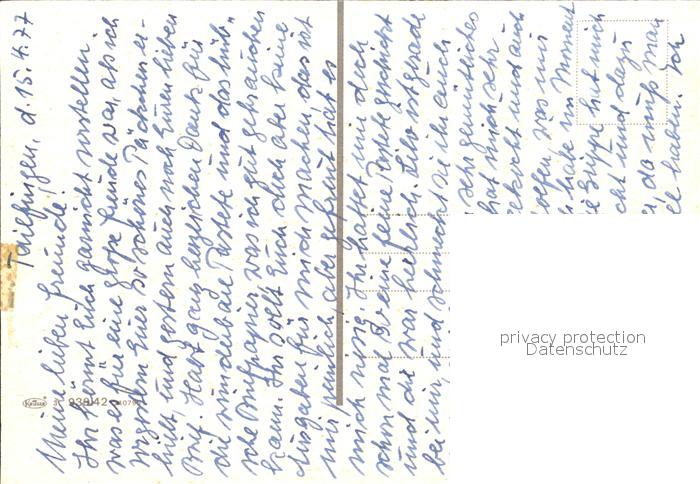 Tailfingen, d. 15.4.77
Meine lieben Freunde!
Ihr könnt Euch garnicht vorstellen
was es für eine große Freude war, als ich
vorgestern Euer so schönes Päckchen er-
hielt, und gestern auch noch Euren lieben
Brief. Habt ganz herzlichen Dank für
die wunderbare Pastete und das hüb-
sche Briefpapier was ich gut gebrauchen
kann. Ihr sollt Euch doch aber keine
Ausgaben für mich machen, das ist
mir peinlich, aber gefreut hat es
mich riesig. Ihr hattet mir doch
schon mal so eine feine Pastete geschickt
und die war herrlich. Lilo ist gerade
bei mir, und schmeckt sie ihr auch
sehr gemütliches
hat mich sehr
gekocht und auch
holfen, was mir
habe im Moment
Grippe hat mich
cht und dazu
da muß man
haben. Ich
Krüger 938/42
privacy protection
Datenschutz